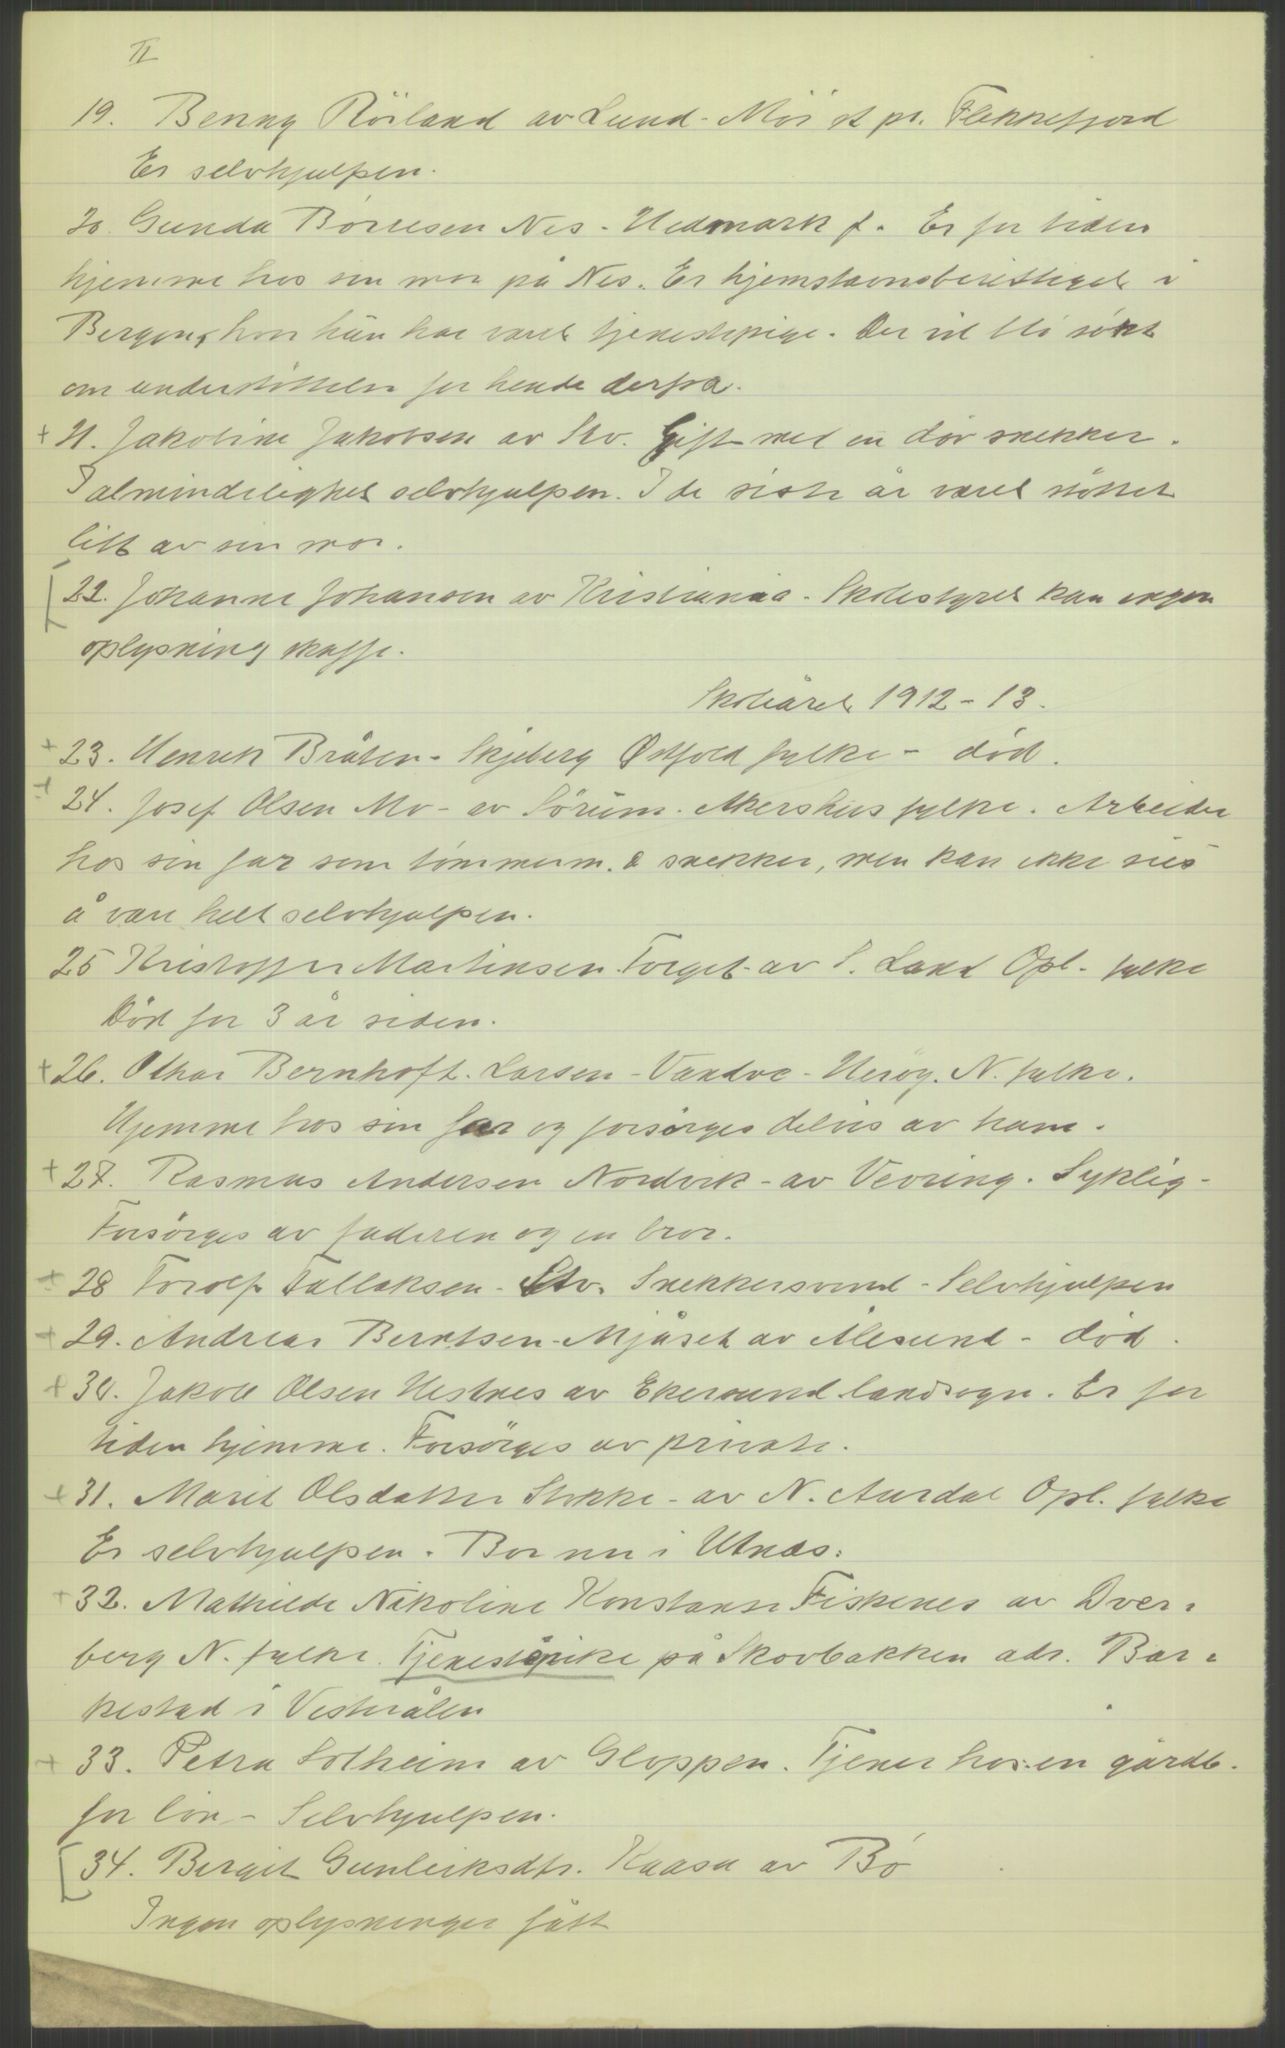 II
19. Benny Röiland av Lund - Moi st pr. Flekkefjord
Er selvhjulpen.
20. Gunda Börresen Nes - Hedmark f. Er for tiden
hjemme hos sin mor på Nes. Er hjemstavnsberettiget i
Bergen, hvor hun har været tjenestepige. Der vil bli søkt
om understöttelse for hende derfra.
+ 21. Jakobine Jakobsen av Stv. Gift med en döv snekker.
I almindelighet selvhjulpen. I de siste år været støttet
litt av sin mor.
[22. Johanne Johansen av Kristiania. Skolestyret kan ingen
oplysning skaffe.
Skoleåret 1912 - 13.
+ 23. Henrik Bråten - Skjeberg Østfold fylke - död.
+ 24. Josef Olsen Mo - av Sörum. Akershus fylke. Arbeider
hos sin far som tömmerm. & snekker, men kan ikke sies
å være helt selvhjulpen.
25 Kristoffer Martinsen Torget av S. Land Opl. fylke
Död for 3 år siden.
+ 26. Othar Bernhoft Larsen - Vandve - Heröy. N. fylke.
Hjemme hos sin far og forsörges delvis av ham.
+ 27. Rasmus Andersen Nordvik - av Vevring. Syklig -
Forsörges av faderen og en bror.
+ 28 Torolf Tallaksen - Stv. Snekkersvend - Selvhjulpen
+ 29. Andreas Berntsen - Mjåset av Ålesund - død.
+ 30. Jakob Olsen Hestnes av Ekersund landsogn. Er for
tiden hjemme. Forsörges av private.
+ 31. Marit Olsdatter Stokke - av N. Aurdal Opl. fylke
Er selvhjulpen. Bor nu i Utnæs.
+ 32. Mathilde Nikoline Konstanse Fiskenes av Dver-
berg N. fylke. Tjenestepike på Skovbakken adr. Bar-
kestad i Vesterålen
+ 33. Petra Solheim av Gloppen. Tjener hos en gårdb.
for lön - Selvhjulpen.
[34. Bergit Gunleiksdtr. Kaasa av Bö
Ingen oplysninger fått